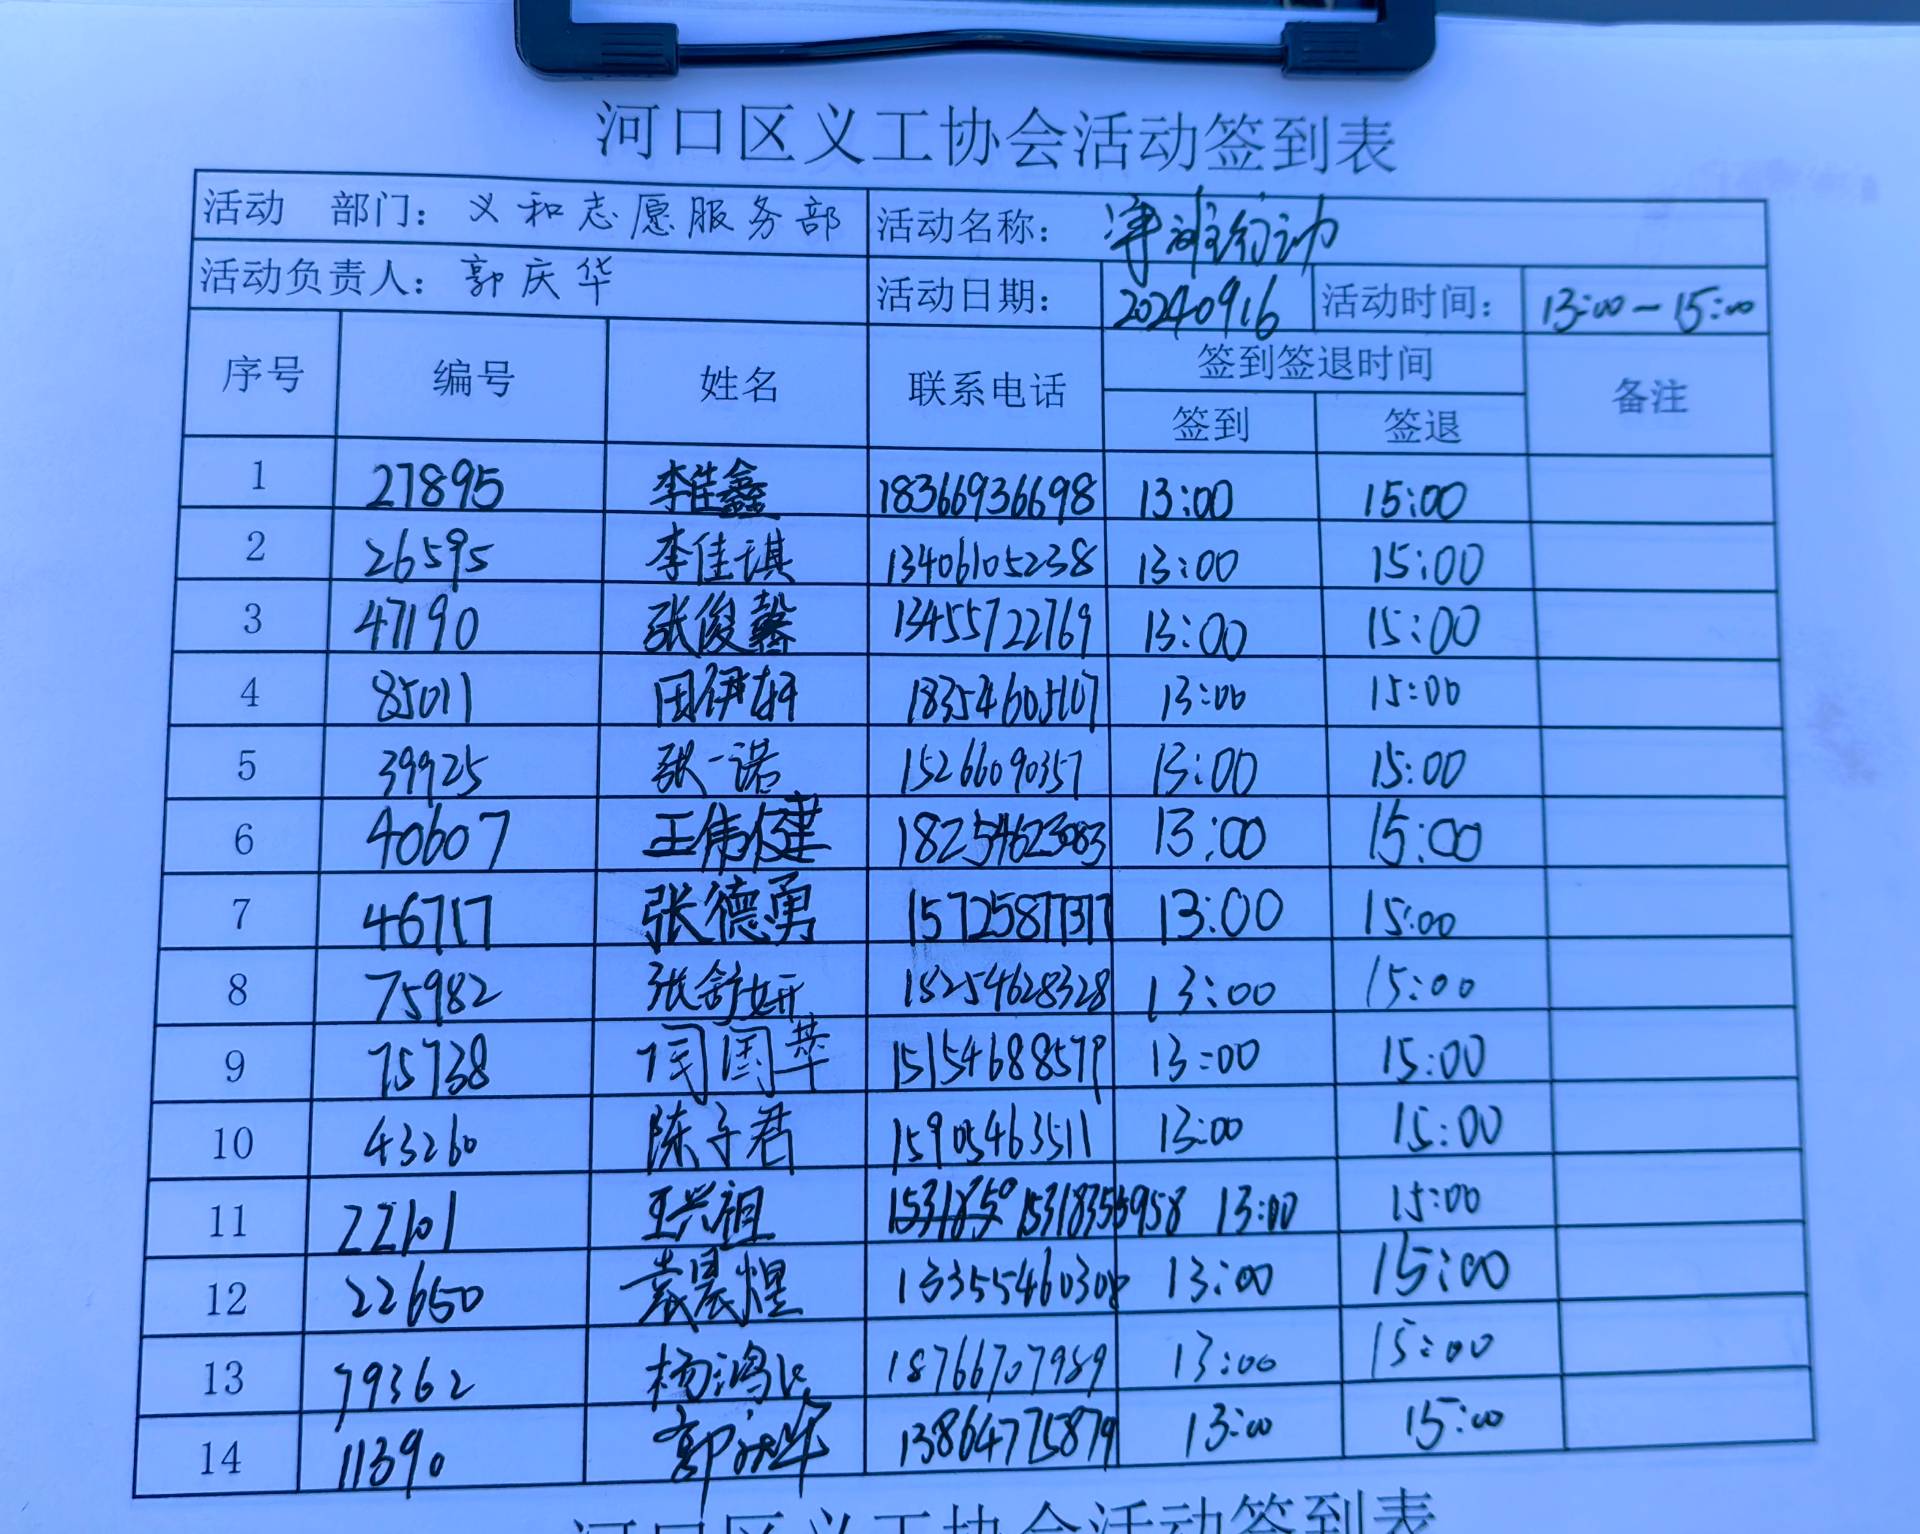 河口区义工协会活动签到表
活动 部门：义和志愿服务部 活动名称：净滩行动
活动负责人：郭庆华 活动日期：20240916 活动时间：13:00-15:00
序号 编号 姓名 联系电话 签到签退时间 备注
签到 签退
1 27895 李佳鑫 18366936698 13:00 15:00
2 26595 李佳琪 13406105238 13:00 15:00
3 47190 张俊馨 13455722769 13:00 15:00
4 85011 田伊轩 18354605107 13:00 15:00
5 39925 张一诺 15266090357 13:00 15:00
6 40607 王伟健 18254623083 13:00 15:00
7 46717 张德勇 15725877317 13:00 15:00
8 75982 张舒妍 15254628328 13:00 15:00
9 75738 闫国苹 15154688579 13:00 15:00
10 43260 陈子君 15905463511 13:00 15:00
11 22101 王兴祖 15318356958 13:00 15:00
12 22650 袁晨煜 13355460308 13:00 15:00
13 79362 杨鸿 18766707989 13:00 15:00
14 11390 郭庆华 13864775879 13:00 15:00
河口区义工协会活动签到表